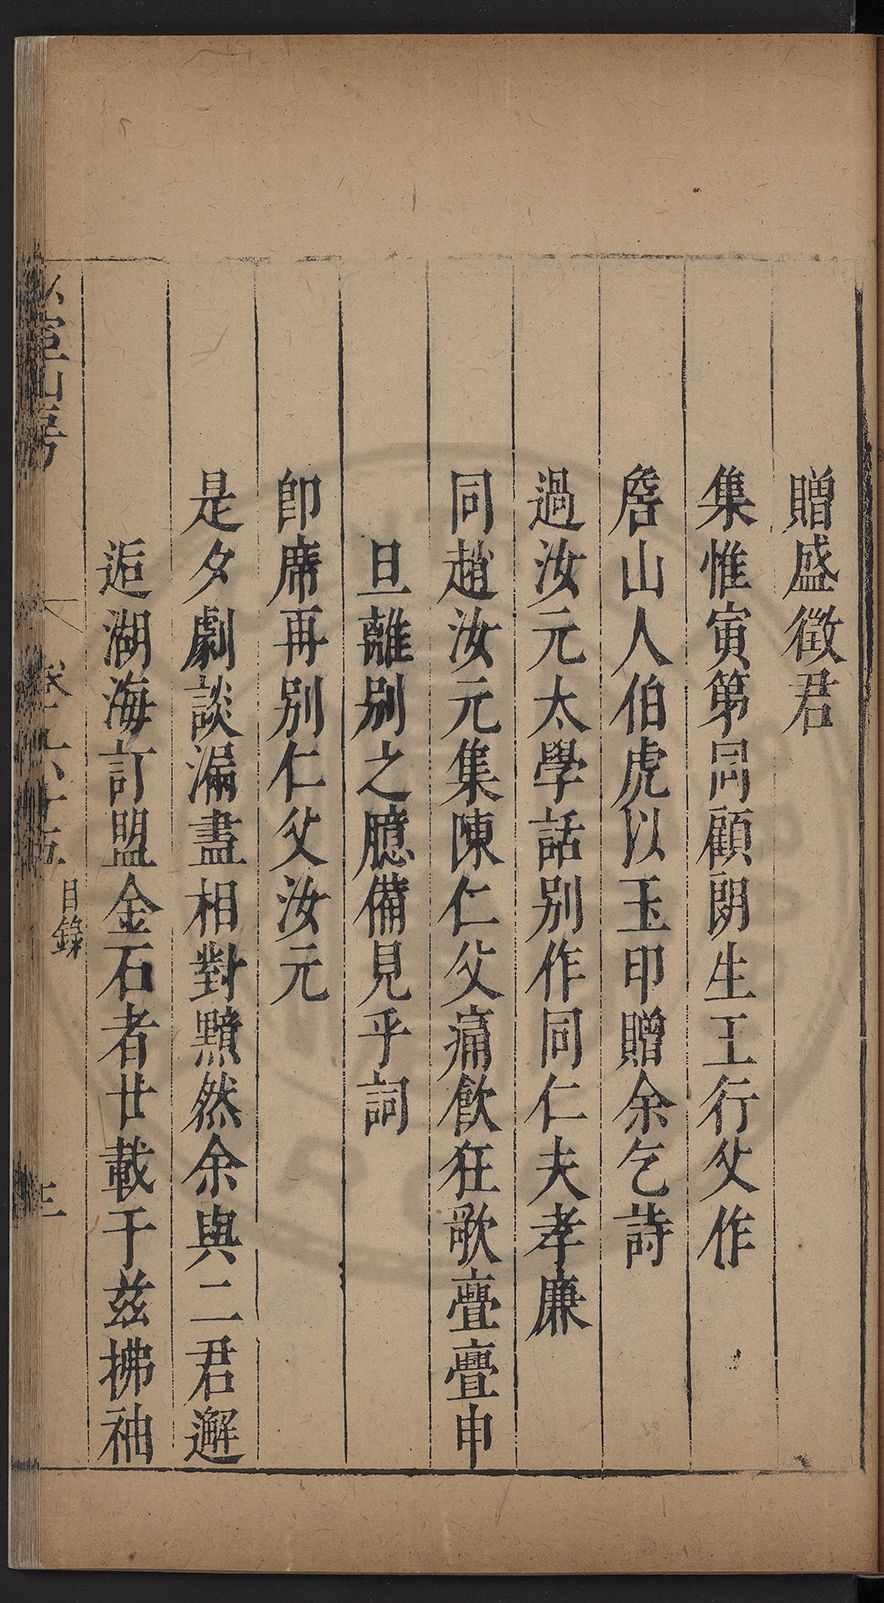 贈盛徵君
集惟寅第同顧朗生王行父作
詹山人伯虎以玉印贈余乞詩
過汝元太學話別作同仁夫孝廉
同趙汝元集陳仁父痛飲狂歌亹亹申
旦離別之臆備見乎詞
即席再別仁父汝元
是夕劇談漏盡相對黯然余與二君邂
逅湖海訂盟金石者廿載于茲拂袖
室山房
卷
目錄
三